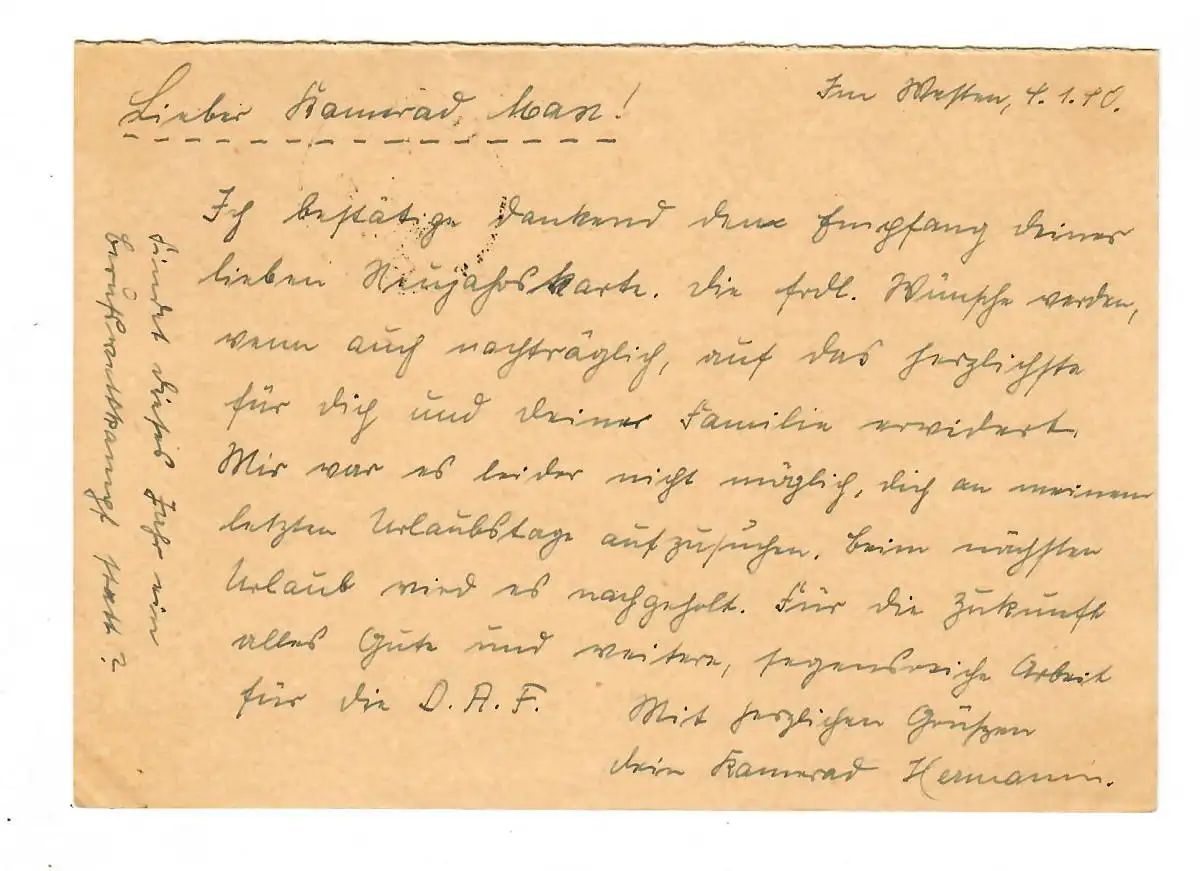 Im Westen, 4.1.40.
Lieber Kamerad Max!
Ich bestätige dankend den Empfang deiner
lieben Neujahrskarte. Die frdl. Wünsche werden,
wenn auch nachträglich, auf das herzlichste
für dich und deine Familie erwidert.
Mir war es leider nicht möglich, dich an meinem
letzten Urlaubstage aufzusuchen. Beim nächsten
Urlaub wird es nachgeholt. Für die Zukunft
alles Gute und weitere, segensreiche Arbeit
für die D.A.F.
Mit herzlichen Grüßen
dein Kamerad Hermann.
Findet dieses Jahr ein
Berufswettkampf statt?